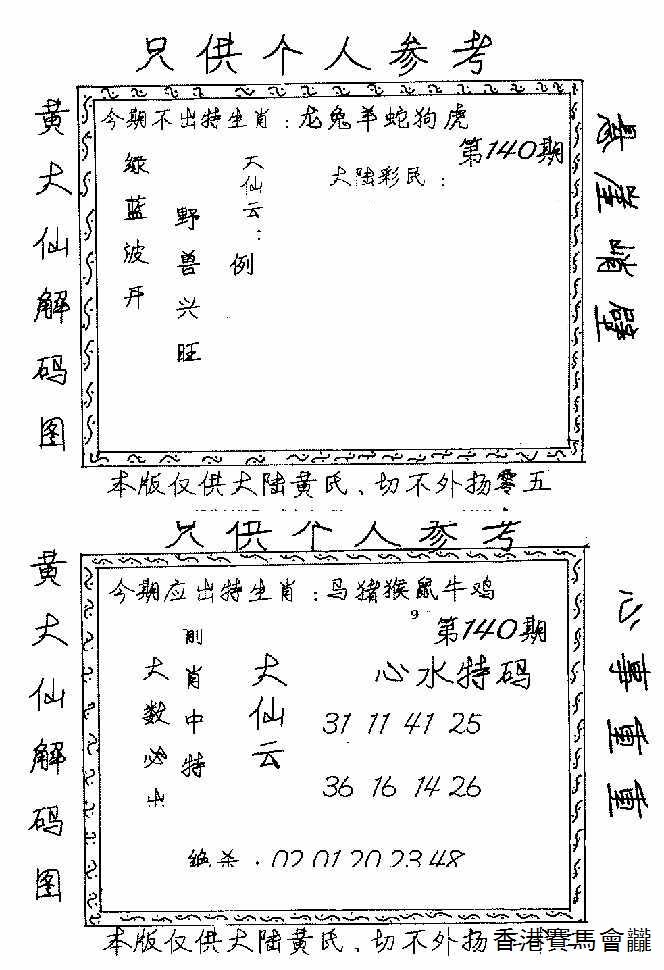 只供个人参考
黄大仙解码图
今期不出特生肖：龙兔羊蛇狗虎
第140期
大陆彩民：
天仙云：例
野兽兴旺
绿蓝波开
悬崖峭壁
本版仅供大陆黄氏、切不外扬零五
只供个人参考
黄大仙解码图
今期应出特生肖：马猪猴鼠牛鸡
9
第140期
心水特码
大仙云
肖中特
大数必出
31 11 41 25
36 16 14 26
绝杀：02 01 20 23 48
心事重重
本版仅供大陆黄氏、切不外扬
香港賽馬會